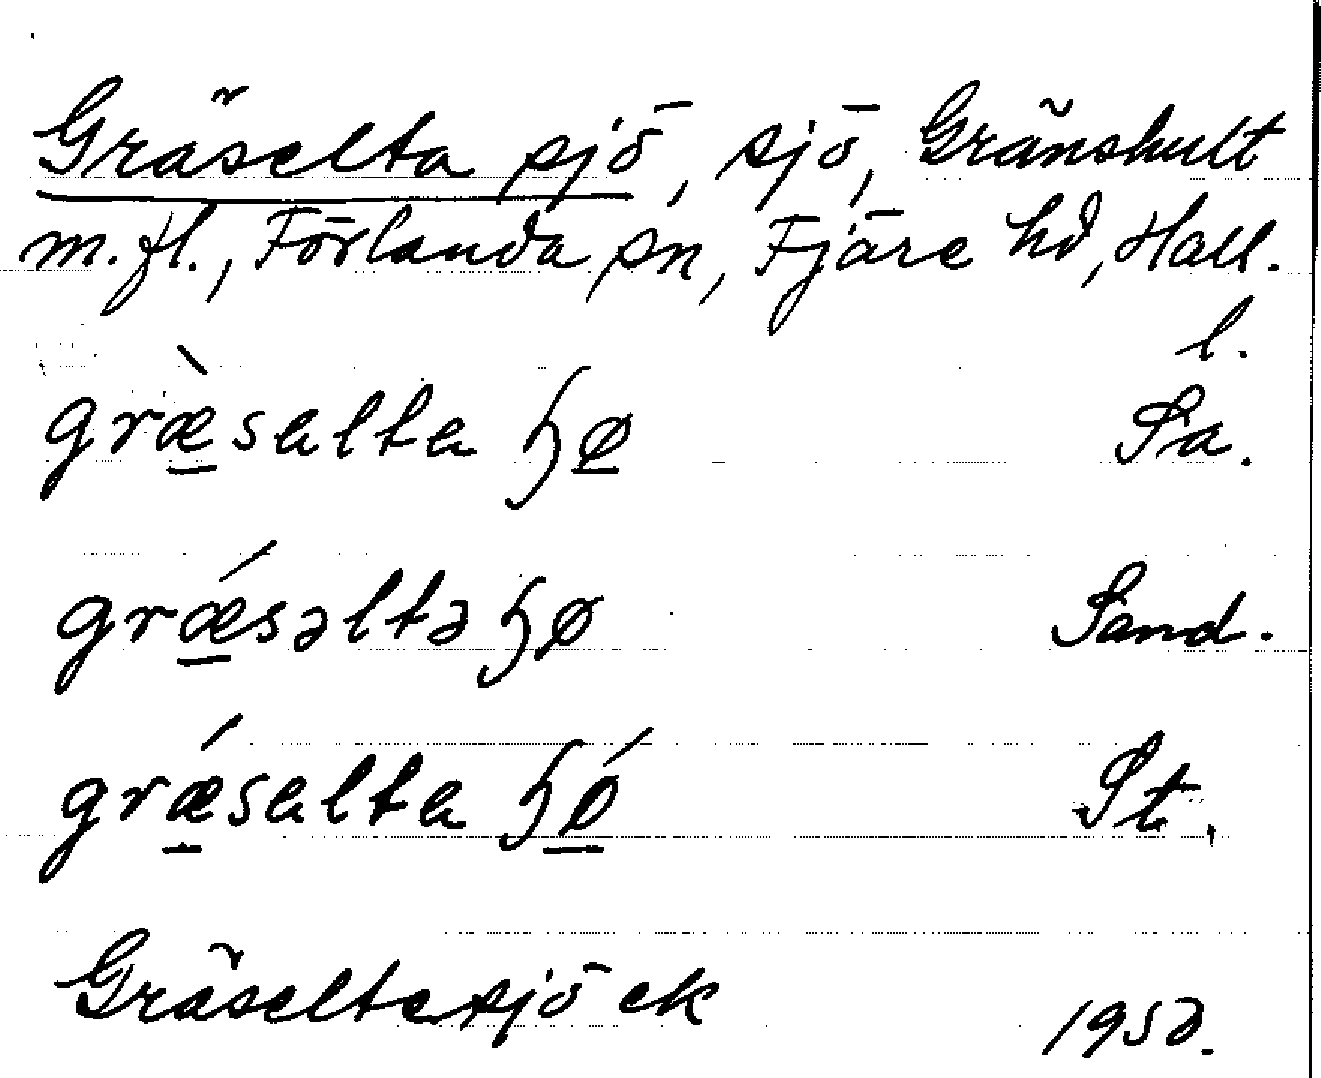 Gräselta sjö, sjö, Gränshult
m.fl., Förlanda sn, Fjäre hd, Hall.
l.
græ̀salta ɧø Sa.
grǽsəltə ɧø Sand.
grǽsalta ɧǿ St.
Gräseltesjö ek